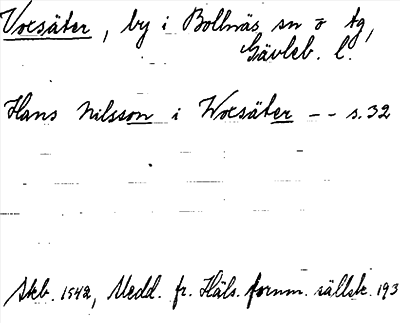 Voxsäter, by i Bollnäs sn o tg,
Gävleb. l.
Hans Nilsson i Woxsäter -- s. 32
Skb. 1542, Medd. fr. Häls. fornm. sällsk. 193